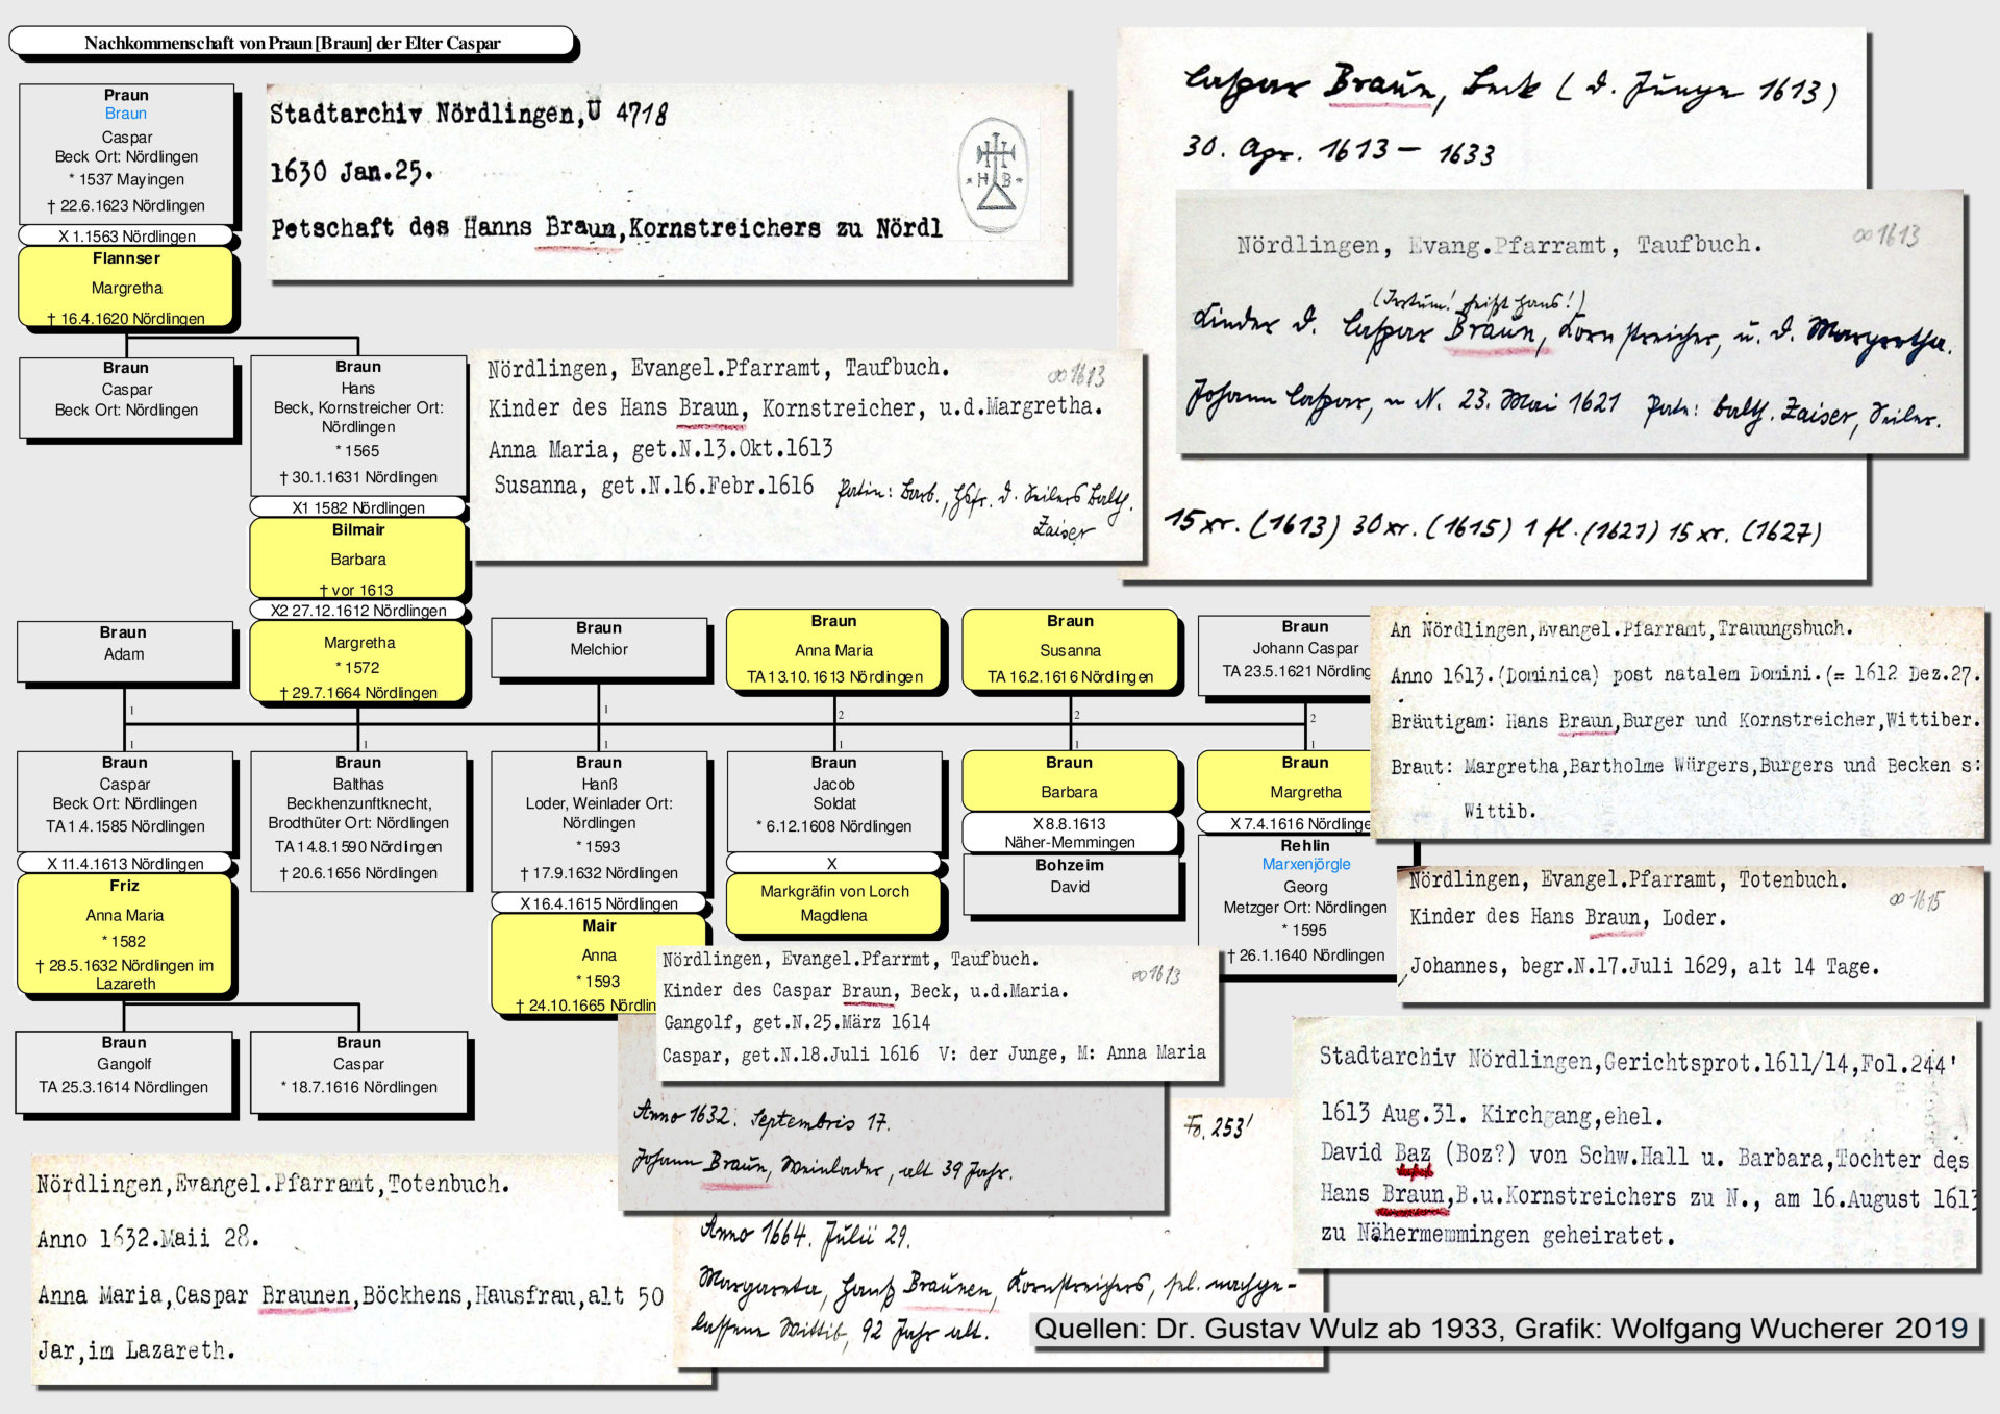 Nachkommenschaft von Praun [Braun] der Elter Caspar
Praun
Braun
Caspar
Beck Ort: Nördlingen
* 1537 Mayingen
† 22.6.1623 Nördlingen
X 1.1563 Nördlingen
Flannser
Margretha
† 16.4.1620 Nördlingen
Stadtarchiv Nördlingen,U 4718
1630 Jan.25.
Petschaft des Hanns Braun,Kornstreichers zu Nördl
H B
Caspar Braun, Beck (d. Junge 1613)
30. Apr. 1613 – 1633
Nördlingen, Evang.Pfarramt, Taufbuch.
∞ 1613
(Irrtum! heißt Hans!)
Kinder d. Caspar Braun, Kornstreicher, u. d. Margretha.
Johann Caspar, ~ N. 23. Mai 1621 Pate: Balth. Zaiser, Seiler.
15 xr. (1613) 30 xr. (1615) 1 fl. (1621) 15 xr. (1627)
Braun
Caspar
Beck Ort: Nördlingen
Braun
Hans
Beck, Kornstreicher Ort:
Nördlingen
* 1565
† 30.1.1631 Nördlingen
X1 1582 Nördlingen
Bilmair
Barbara
† vor 1613
X2 27.12.1612 Nördlingen
Margretha
* 1572
† 29.7.1664 Nördlingen
Nördlingen, Evangel.Pfarramt, Taufbuch.
∞ 1613
Kinder des Hans Braun, Kornstreicher, u.d.Margretha.
Anna Maria, get.N.13.Okt.1613
Susanna, get.N.16.Febr.1616 Patin: Barb., Hsfr. d. Seilers Balth.
Zaiser
Braun
Adam
Braun
Melchior
Braun
Anna Maria
TA 13.10.1613 Nördlingen
Braun
Susanna
TA 16.2.1616 Nördlingen
Braun
Johann Caspar
TA 23.5.1621 Nördling
An Nördlingen,Evangel.Pfarramt,Trauungsbuch.
Anno 1613.(Dominica) post natalem Domini.(= 1612 Dez.27.
Bräutigam: Hans Braun,Burger und Kornstreicher,Wittiber.
Braut: Margretha,Bartholme Würgers,Burgers und Becken s:
Wittib.
1
1
2
2
2
1
1
1
1
1
1
Braun
Caspar
Beck Ort: Nördlingen
TA 1.4.1585 Nördlingen
X 11.4.1613 Nördlingen
Friz
Anna Maria
* 1582
† 28.5.1632 Nördlingen im
Lazareth
Braun
Balthas
Beckhenzunftknecht,
Brodthüter Ort: Nördlingen
TA 14.8.1590 Nördlingen
† 20.6.1656 Nördlingen
Braun
Hanß
Loder, Weinlader Ort:
Nördlingen
* 1593
† 17.9.1632 Nördlingen
X 16.4.1615 Nördlingen
Mair
Anna
* 1593
† 24.10.1665 Nördlin
Braun
Jacob
Soldat
* 6.12.1608 Nördlingen
X
Markgräfin von Lorch
Magdlena
Braun
Barbara
X 8.8.1613
Näher-Memmingen
Bohzeim
David
Braun
Margretha
X 7.4.1616 Nördlinge
Rehlin
Marxenjörgle
Georg
Metzger Ort: Nördlingen
* 1595
† 26.1.1640 Nördlingen
Nördlingen, Evangel.Pfarramt, Totenbuch.
∞ 1615
Kinder des Hans Braun, Loder.
Johannes, begr.N.17.Juli 1629, alt 14 Tage.
Nördlingen, Evangel.Pfarrmt, Taufbuch.
∞ 1613
Kinder des Caspar Braun, Beck, u.d.Maria.
Gangolf, get.N.25.März 1614
Caspar, get.N.18.Juli 1616 V: der Junge, M: Anna Maria
Braun
Gangolf
TA 25.3.1614 Nördlingen
Braun
Caspar
* 18.7.1616 Nördlingen
Stadtarchiv Nördlingen,Gerichtsprot.1611/14,Fol.244'
1613 Aug.31. Kirchgang,ehel.
David Baz (Boz?) von Schw.Hall u. Barbara,Tochter des
Hans Braun,B.u.Kornstreichers zu N., am 16.August 1613
zu Nähermemmingen geheiratet.
Anno 1632. Septembris 17.
Johann Braun, Weinlader, alt 39 Jahr.
Fo. 253'
Anno 1664. Julii 29.
Margareta, Hanß Braunen, Kornstreichers, sel. nachge-
lassene Wittib, 92 Jahr alt.
Nördlingen,Evangel.Pfarramt,Totenbuch.
Anno 1632.Maii 28.
Anna Maria,Caspar Braunen,Böckhens,Hausfrau,alt 50
Jar,im Lazareth.
Quellen: Dr. Gustav Wulz ab 1933, Grafik: Wolfgang Wucherer 2019